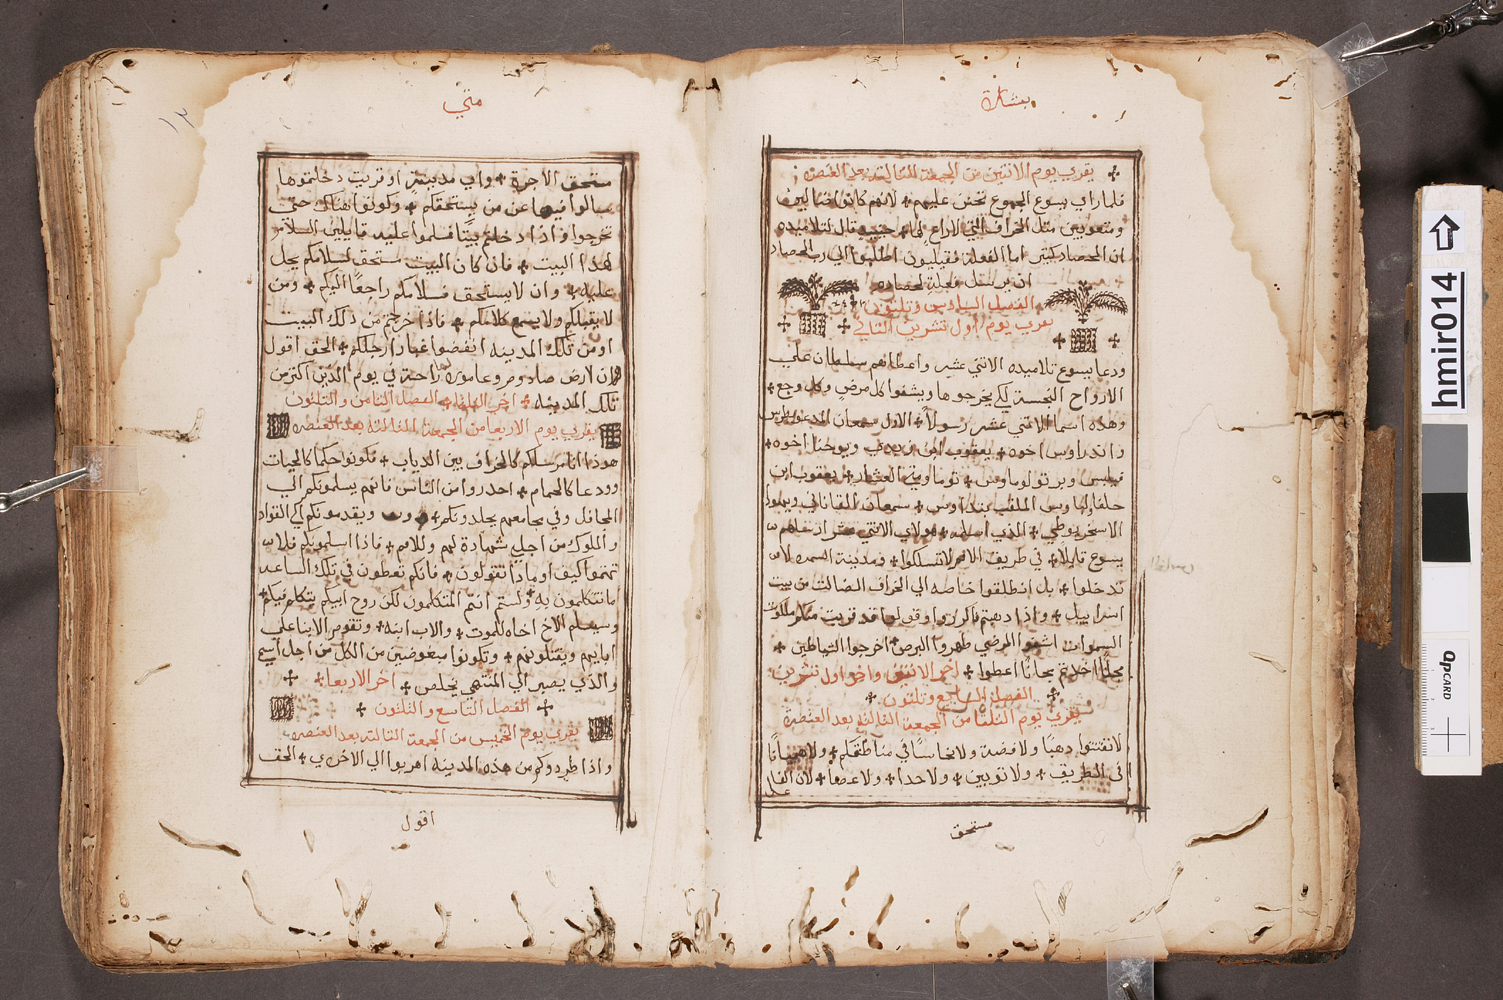 بشارة
يقري يوم الاثنين من الجمعة الثالثة بعد العنصرة
فلما راي يسوع الجموع تحنن عليهم لانهم كانوا ضالين
ومتعوبين مثل الخراف التي لا راع لها حينيد قال لتلاميده
ان الحصاد كتير اما الفعلة فقيليون اطلبوا الي رب الحصاد
ان يرسل فعلة لحصاده
الفصل السادس وتلتون
يقري يوم اول تشرين التاني
ودعا يسوع تلاميده الاتني عشر واعطاهم سلطان علي
الارواح النجسة لكي يخرجوها ويشفوا كل مرض وكل وجع
وهده اسما الاتني عشر رسولا الاول سمعان المدعو بطرس
واندراوس اخوه يعقوب ابن زبدي ويوحنا اخوه
فيلبس وبرتولوماوس توما ومتي العشار يعقوب ابن
حلفا لباوس الملقب بتداوس سمعان القاناني ويهودا
الاسخريوطي الدي اسلمه هولاي الاتني عشر ارسلهم
يسوع قايلا في طريق الامم لا تسلكوا ومدينة السمره لا
تدخلوا بل انطلقوا خاصه الي الخراف الضالت من بيت
اسراييل وادا دهبتم فاكرزوا وقولوا قد قربت ملكوت
السموات اشفوا المرضي طهروا البرص اخرجوا الشياطين
مجانا اخدتم مجانا اعطوا اخر الاتنين واخر اول تشرين
الفصل السابع وتلتون
يقري يوم التلتا من الجمعة التالثه بعد العنصرة
لا تقتنوا دهبا ولا فضة ولا نحاسا في مناطقكم ولا هميانا
في الطريق ولا توبين ولا حدا ولا عصا لان الفاعل
مستحق
متي
١٣
مستحق الاجرة واي مدينة او قرية دخلتموها
سالوا فيها عن من يستحقكم وكونوا هناك حتي
تخرجوا وادا دخلتم بيتا فسلموا عليه قايلين السلام
لهدا البيت فان كان البيت مستحق لسلامكم يحل
عليه وان لا يستحق فسلامكم راجعا اليكم ومن
لا يقبلكم ولا يسمع كلامكم فادا خرجتم من دلك البيت
او من تلك المدينه انفضوا غبار ارجلكم الحق اقول
ان لارض صادوم وعاموره راحة في يوم الدين اكتر من
تلك المدينه اخر التلتا الفصل التامن والتلتون
يقري يوم الاربعا من الجمعة التالثة بعد العنصره
هودا انا مرسلكم كالخراف بين الدياب فكونوا حكما كالحيات
وودعا كالحمام احدروا من الناس فانهم يسلمونكم الي
المحافل وفي مجامعهم يجلدونكم ويقدمونكم الي القواد
والملوك من اجلي شهادة لهم وللامم فادا اسلموكم فلا
تهتموا كيف او مادا تقولون فانكم تعطون في تلك الساعه
ما تتكلمون به ولستم انتم المتكلمون لكن روح ابيكم يتكلم فيكم
وسيسلم الاخ اخاه للموت والاب ابنه وتقوم الابنا علي
ابايهم ويقتلونهم وتكونوا مبغوضين من الكل من اجل اسمي
والدي يصبر الي المنتهي يخلص اخر الاربعا
الفصل التاسع والتلتون
يقري يوم الخميس من الجمعة التالتة بعد العنصره
وادا طردوكم من هده المدينة اهربوا الي الاخري الحق
اقول
hmir014
QPCARD